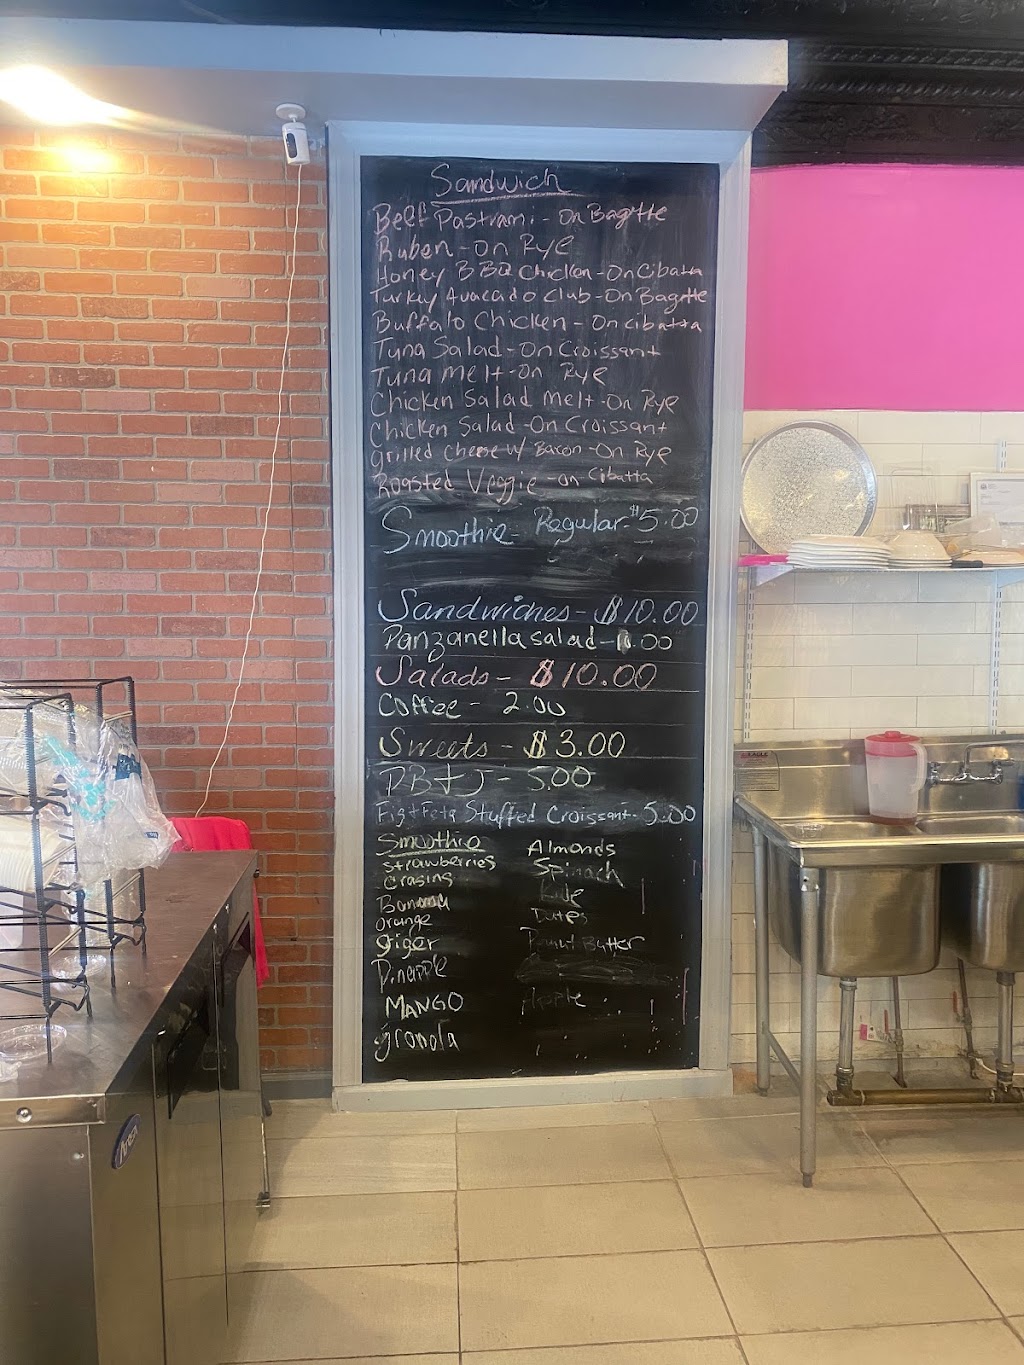 Sandwich
Beef Pastrami - On Bagette
Ruben - on Rye
Honey BBQ Chicken - On Cibatta
Turkey Avacado Club - On Bagette
Buffalo Chicken - On cibatta
Tuna Salad - On Croissant
Tuna Melt - On Rye
Chicken Salad Melt - On Rye
Chicken Salad - On Croissant
grilled cheese w/ Bacon - On Rye
Roasted Veggie - on Cibatta
Smoothie - Regular - $5.00
Sandwiches - $10.00
Panzanella salad - 10.00
Salads - $10.00
Coffee - 2.00
Sweets - $3.00
PB+J - 5.00
Fig+Feta Stuffed Croissant - 5.00
Smoothie
strawberries Almonds
Crasins Spinach
Banana
Orange Dates
giger Peanut Butter
Pineapple
MANGO Apple
granola